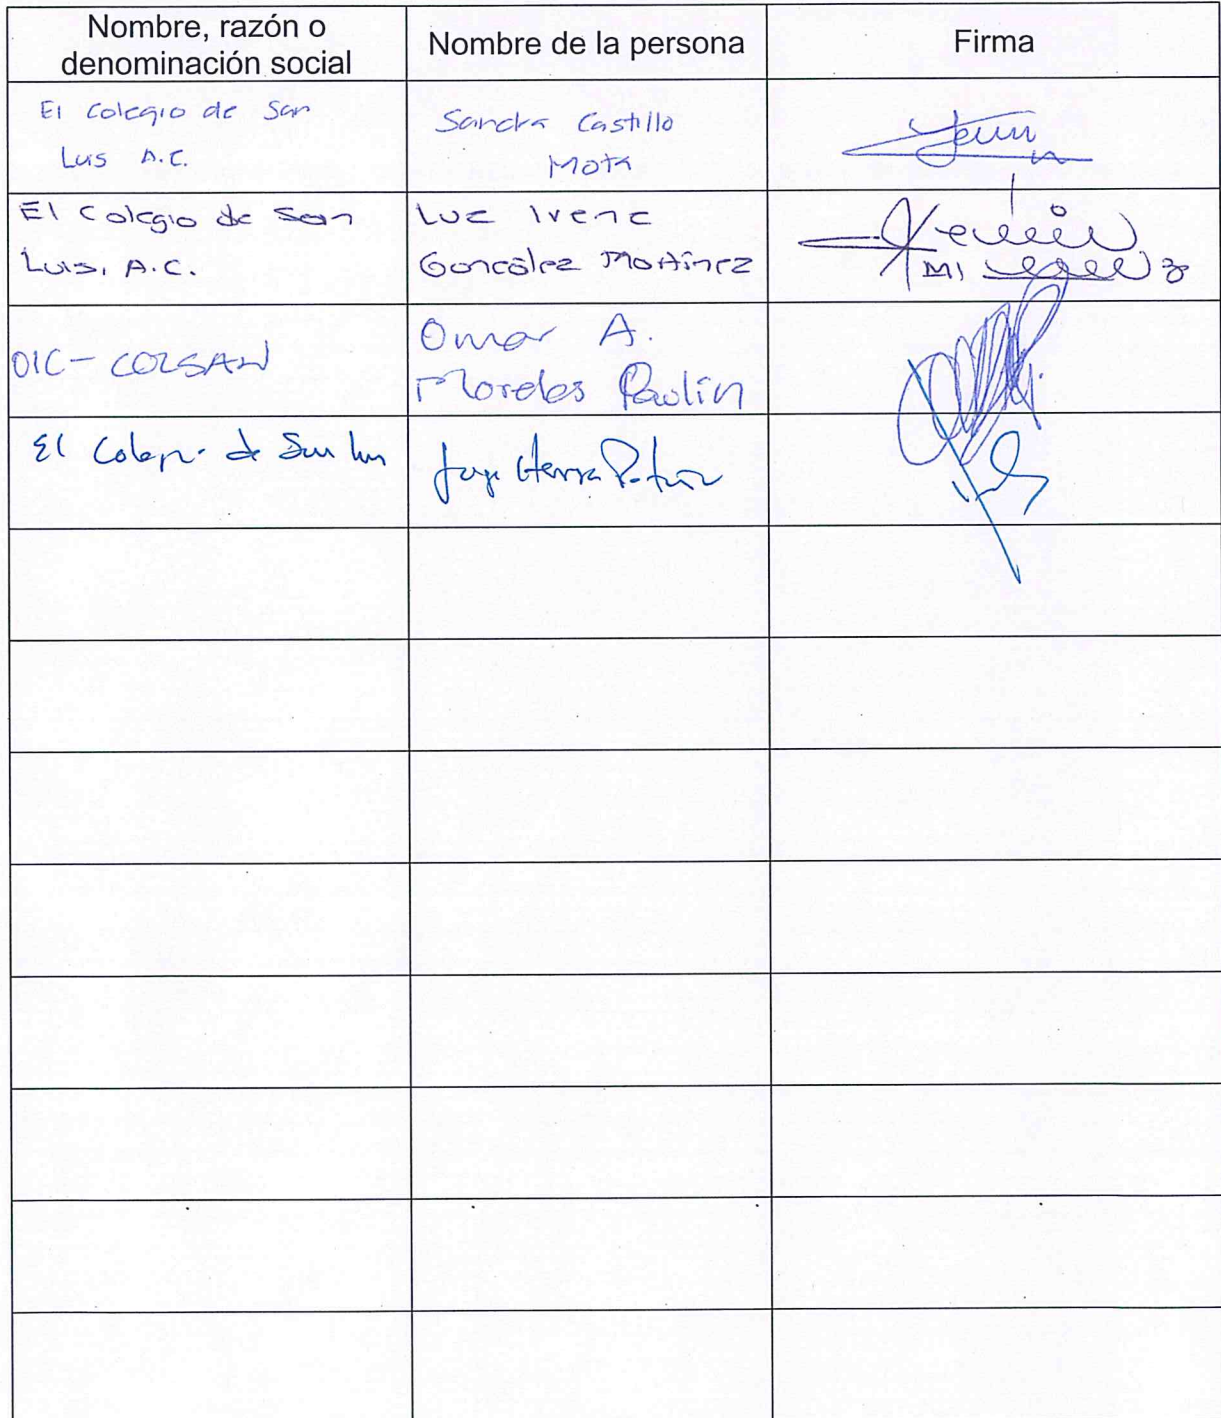 Nombre, razón o
denominación social
Nombre de la persona
Firma
El Colegio de San
Luis A.C.
Sandra Castillo
Mota
El Colegio de San
Luis, A.C.
Luz Irene
González Martínez
OIC- COLSAN
Omar A.
Morelos Paulín
El Colegio de San Luis
Jorge Herrera